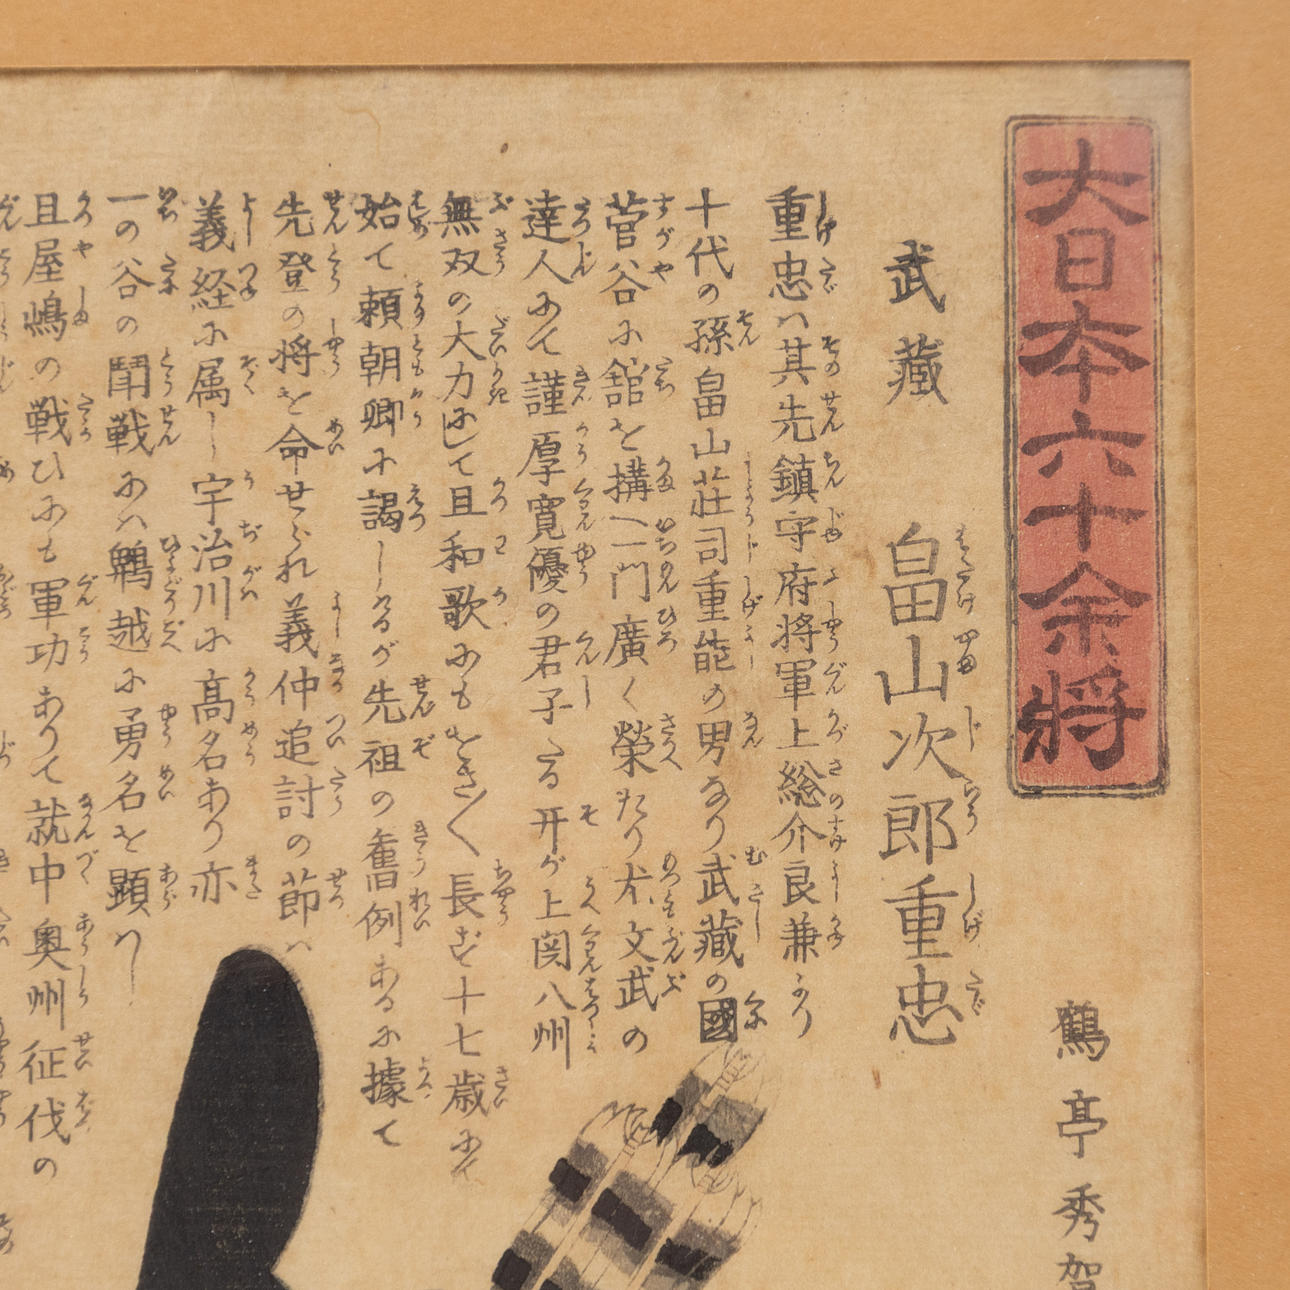 大日本六十余将
鶴亭秀賀
武藏 畠山次郎重忠
重忠ハ其先鎮守府将軍上総介良兼より
十代の孫畠山荘司重能の男なり武藏の國
菅谷に舘を構へ一門廣く榮たり尤文武の
達人にて謹厚寛優の君子たる
無双の大力にして且和歌にも
始て頼朝卿に謁しけるが先祖の舊例あるに據て
先登の将を命せられ義仲追討の節ハ
義経に属し宇治川に高名あり亦
一の谷の鬪戦にハ鵯越に勇名を顕ハし
且屋嶋の戦ひにも軍功ありて就中奥州征伐の